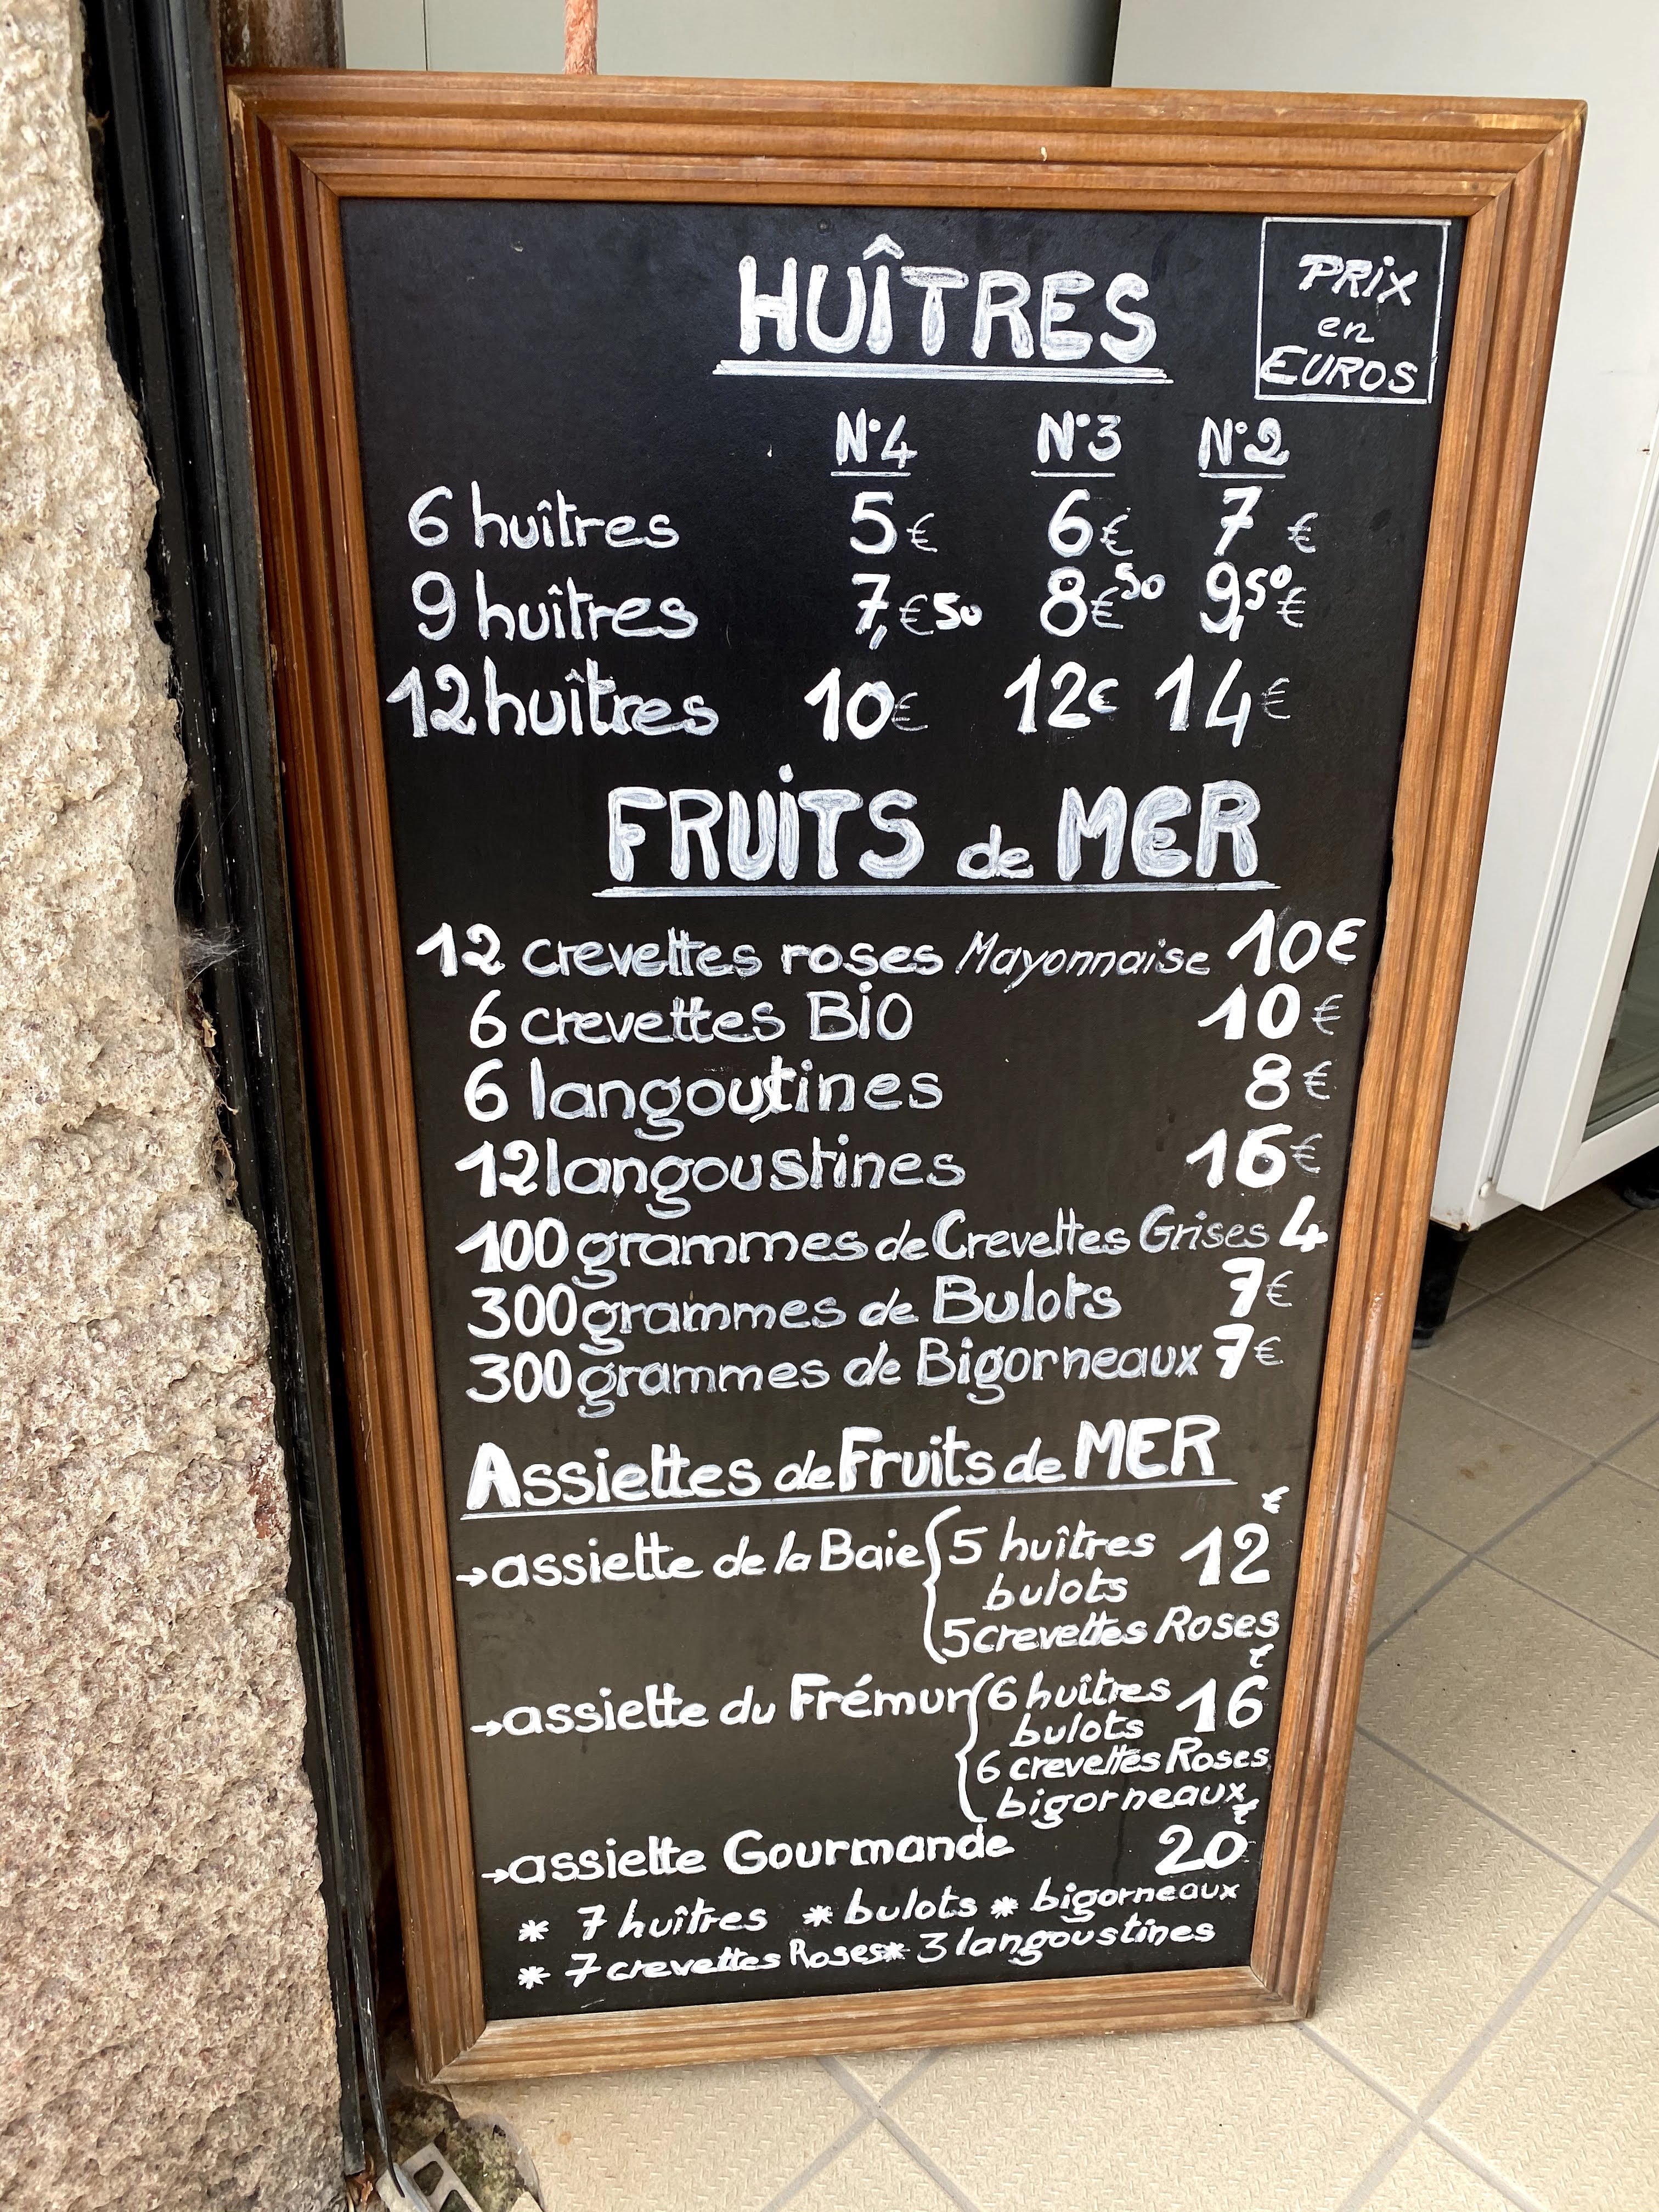 HUÎTRES
PRIX
en
EUROS
N°4 N°3 N°2
6 huîtres 5€ 6€ 7€
9 huîtres 7,€50 8€50 9,50€
12 huîtres 10€ 12€ 14€
FRUITS de MER
12 crevettes roses Mayonnaise 10€
6 crevettes BIO 10€
6 langoutines 8€
12 langoustines 16€
100 grammes de Crevettes Grises 4
300 grammes de Bulots 7€
300 grammes de Bigorneaux 7€
Assiettes de Fruits de MER
→assiette de la Baie { 5 huîtres 12€
bulots
5 crevettes Roses
→assiette du Frémur { 6 huîtres 16€
bulots
6 crevettes Roses
bigorneaux
→assiette Gourmande 20€
* 7 huîtres * bulots * bigorneaux
* 7 crevettes Roses * 3 langoustines